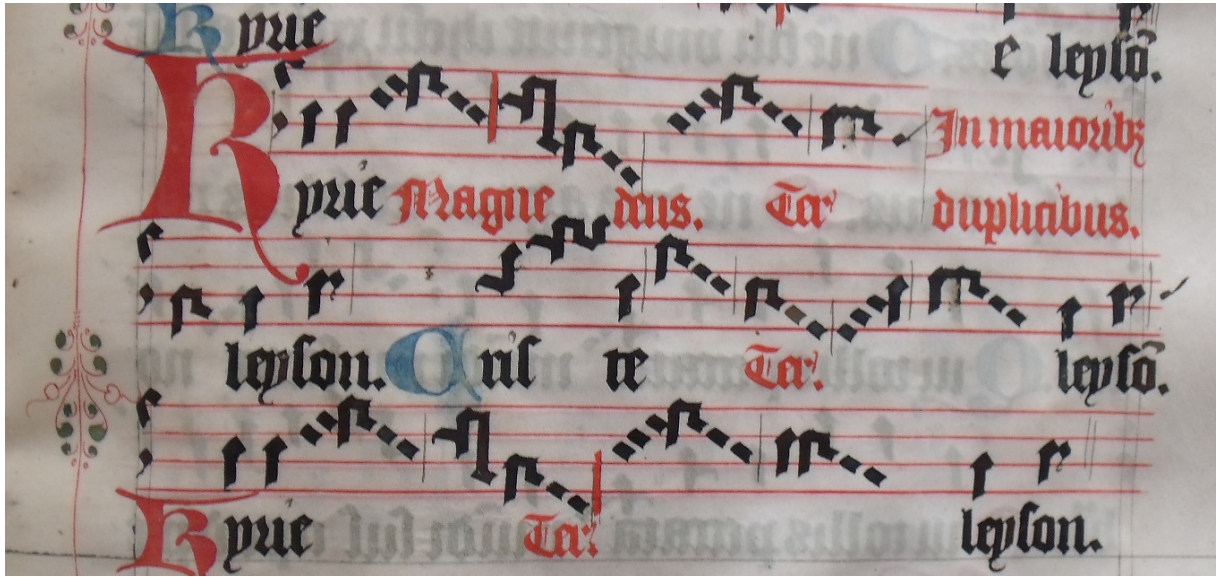 Kyrie e leysō.
Kyrie Magne deus. Ter In maioribꝫ duplicibus.
leyson. Criſ te Ter. leysō.
Kyrie Ter. leyson.